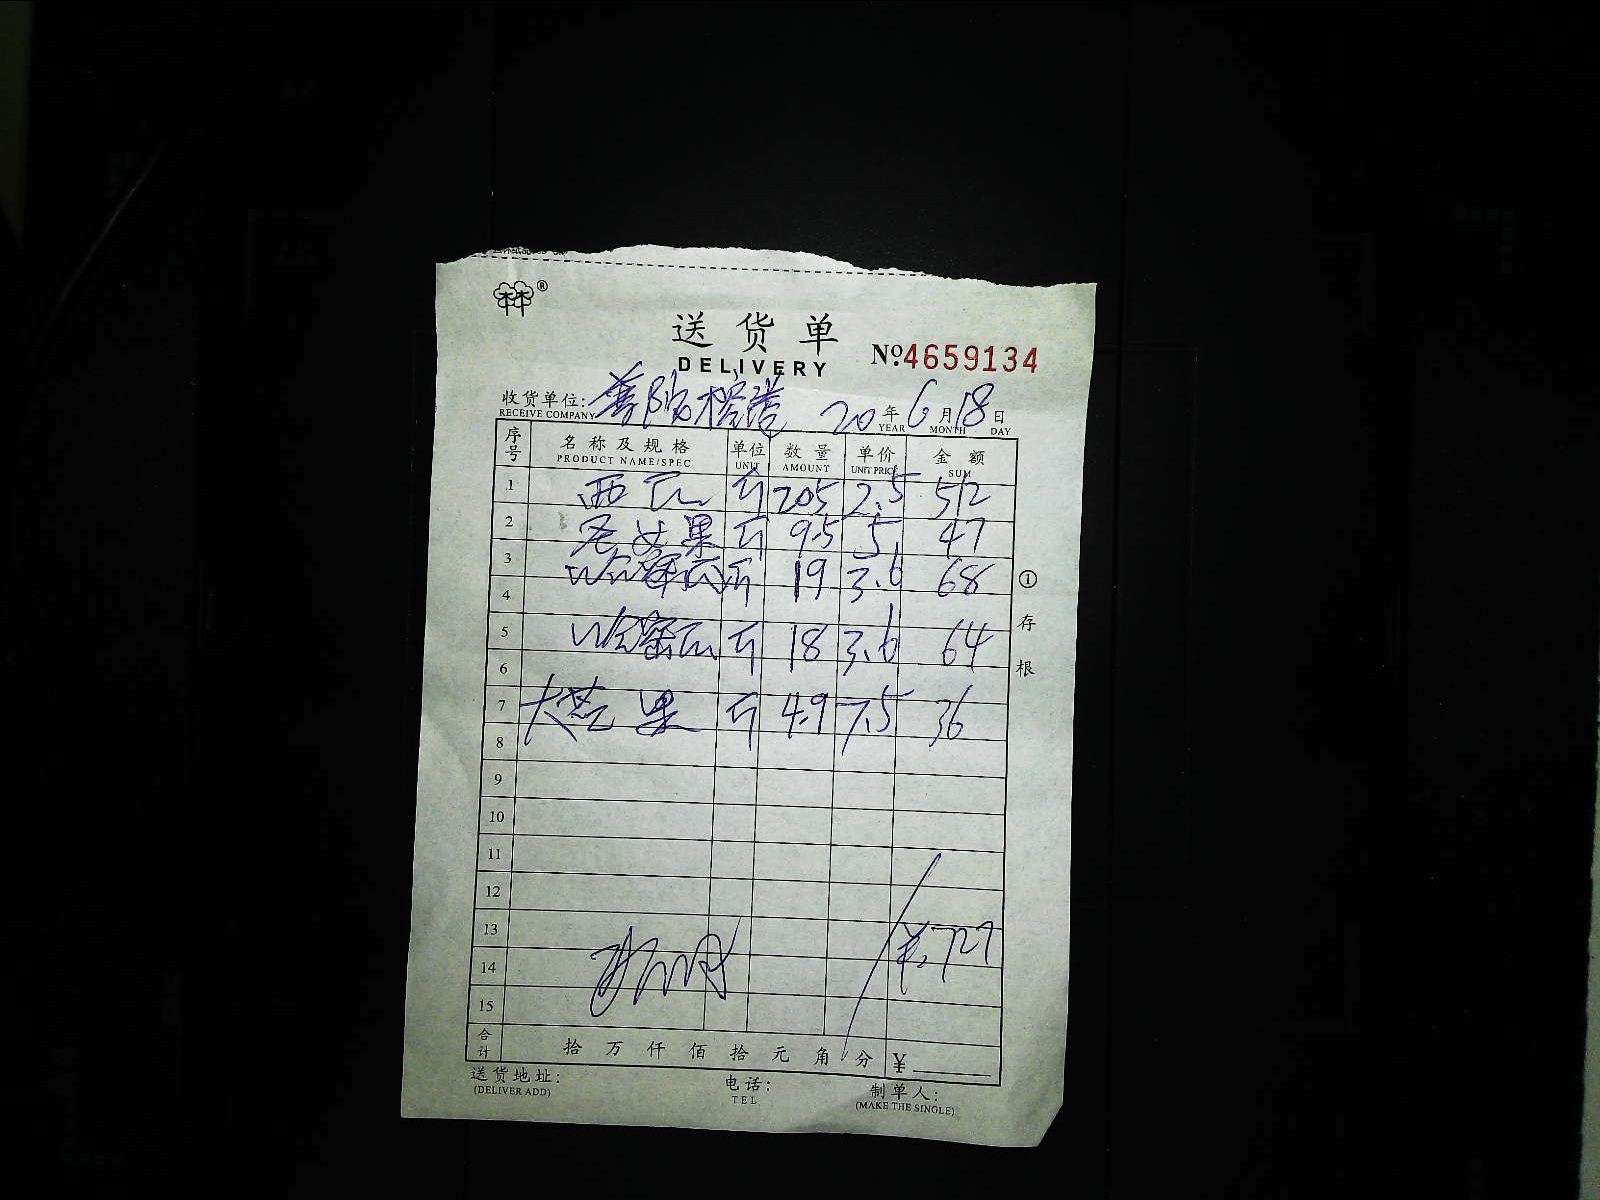 送货单
DELIVERY
№.4659134
收货单位: 20年6月18日
RECEIVE COMPANY YEAR MONTH DAY
序号 名称及规格 单位 数量 单价 金额
PRODUCT NAME/SPEC UNIT AMOUNT UNIT PRICE SUM
1 西瓜 斤 205 2.5 512
2 圣女果 斤 9.5 5 47
3 哈蜜瓜 斤 19 3.6 68
4
5 哈蜜瓜 斤 18 3.6 64
6
7 大芒果 斤 4.9 7.5 36
8
9
10
11
12
13 ¥:727
14
15
合计 拾万仟佰拾元角分 ¥
①存根
送货地址: 电话: 制单人:
(DELIVER ADD) TEL (MAKE THE SINGLE)